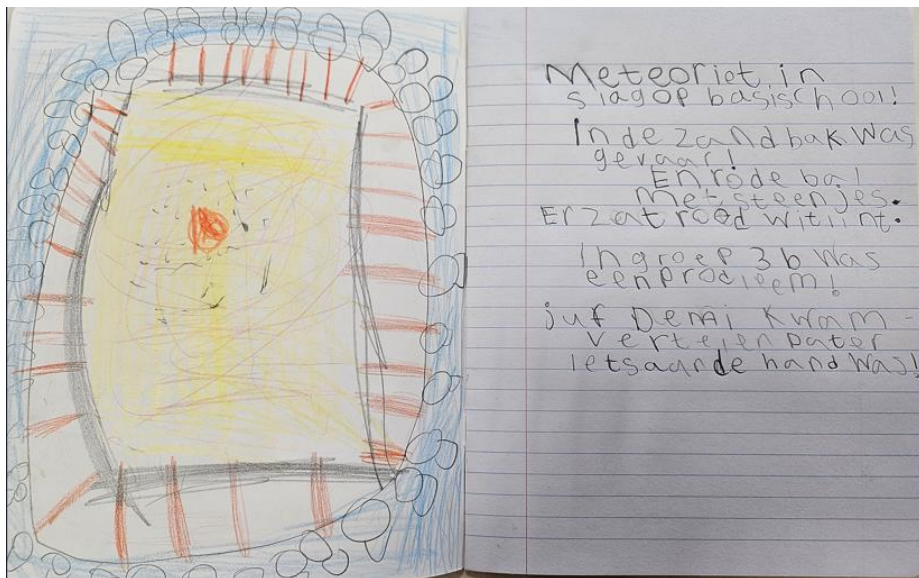 Meteoriet in
slagop basischool!
In de zandbak was
gevaar!
En rode bal
Met steenjes.
Er zat rood wit lint.
In groep 3b was
een probleem!
juf Demi kwam -
vertelen dat er
Iets aan de hand was!